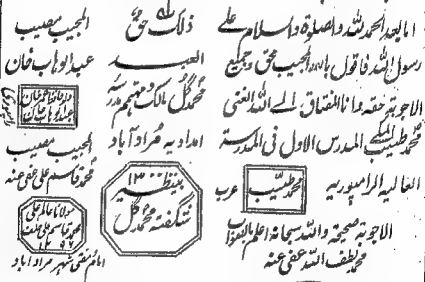 اما بعد الحمد للہ والصلوۃ والسلام علی
رسول اللہ فاقول باللہ المجیب محق وجمیع
الاجوبۃ حقہ وانا المفتاق الے اللہ الغنی
محمد طیب المکی المدرس الاول فی المدرسۃ
العالیہ الرامپوریہ
محمد طیب
عرب
الاجوبۃ صحیحۃ واللہ سبحانہ اعلم بالصواب
محمد لطف اللہ عفی عنہ
ذلک حق
العبد
محمد گل مالک ومہتمم مدرسہ
امدادیہ مراد آباد
بینظیر
شگفتہ محمد گل
المجیب مصیب
عبدالوہاب خان
المجیب مصیب
محمد قاسم علی عفی عنہ
مولانا عالم علی
محمد قاسم علی خلف
۱۲۹۶
امام مفتی شہر مراد آباد